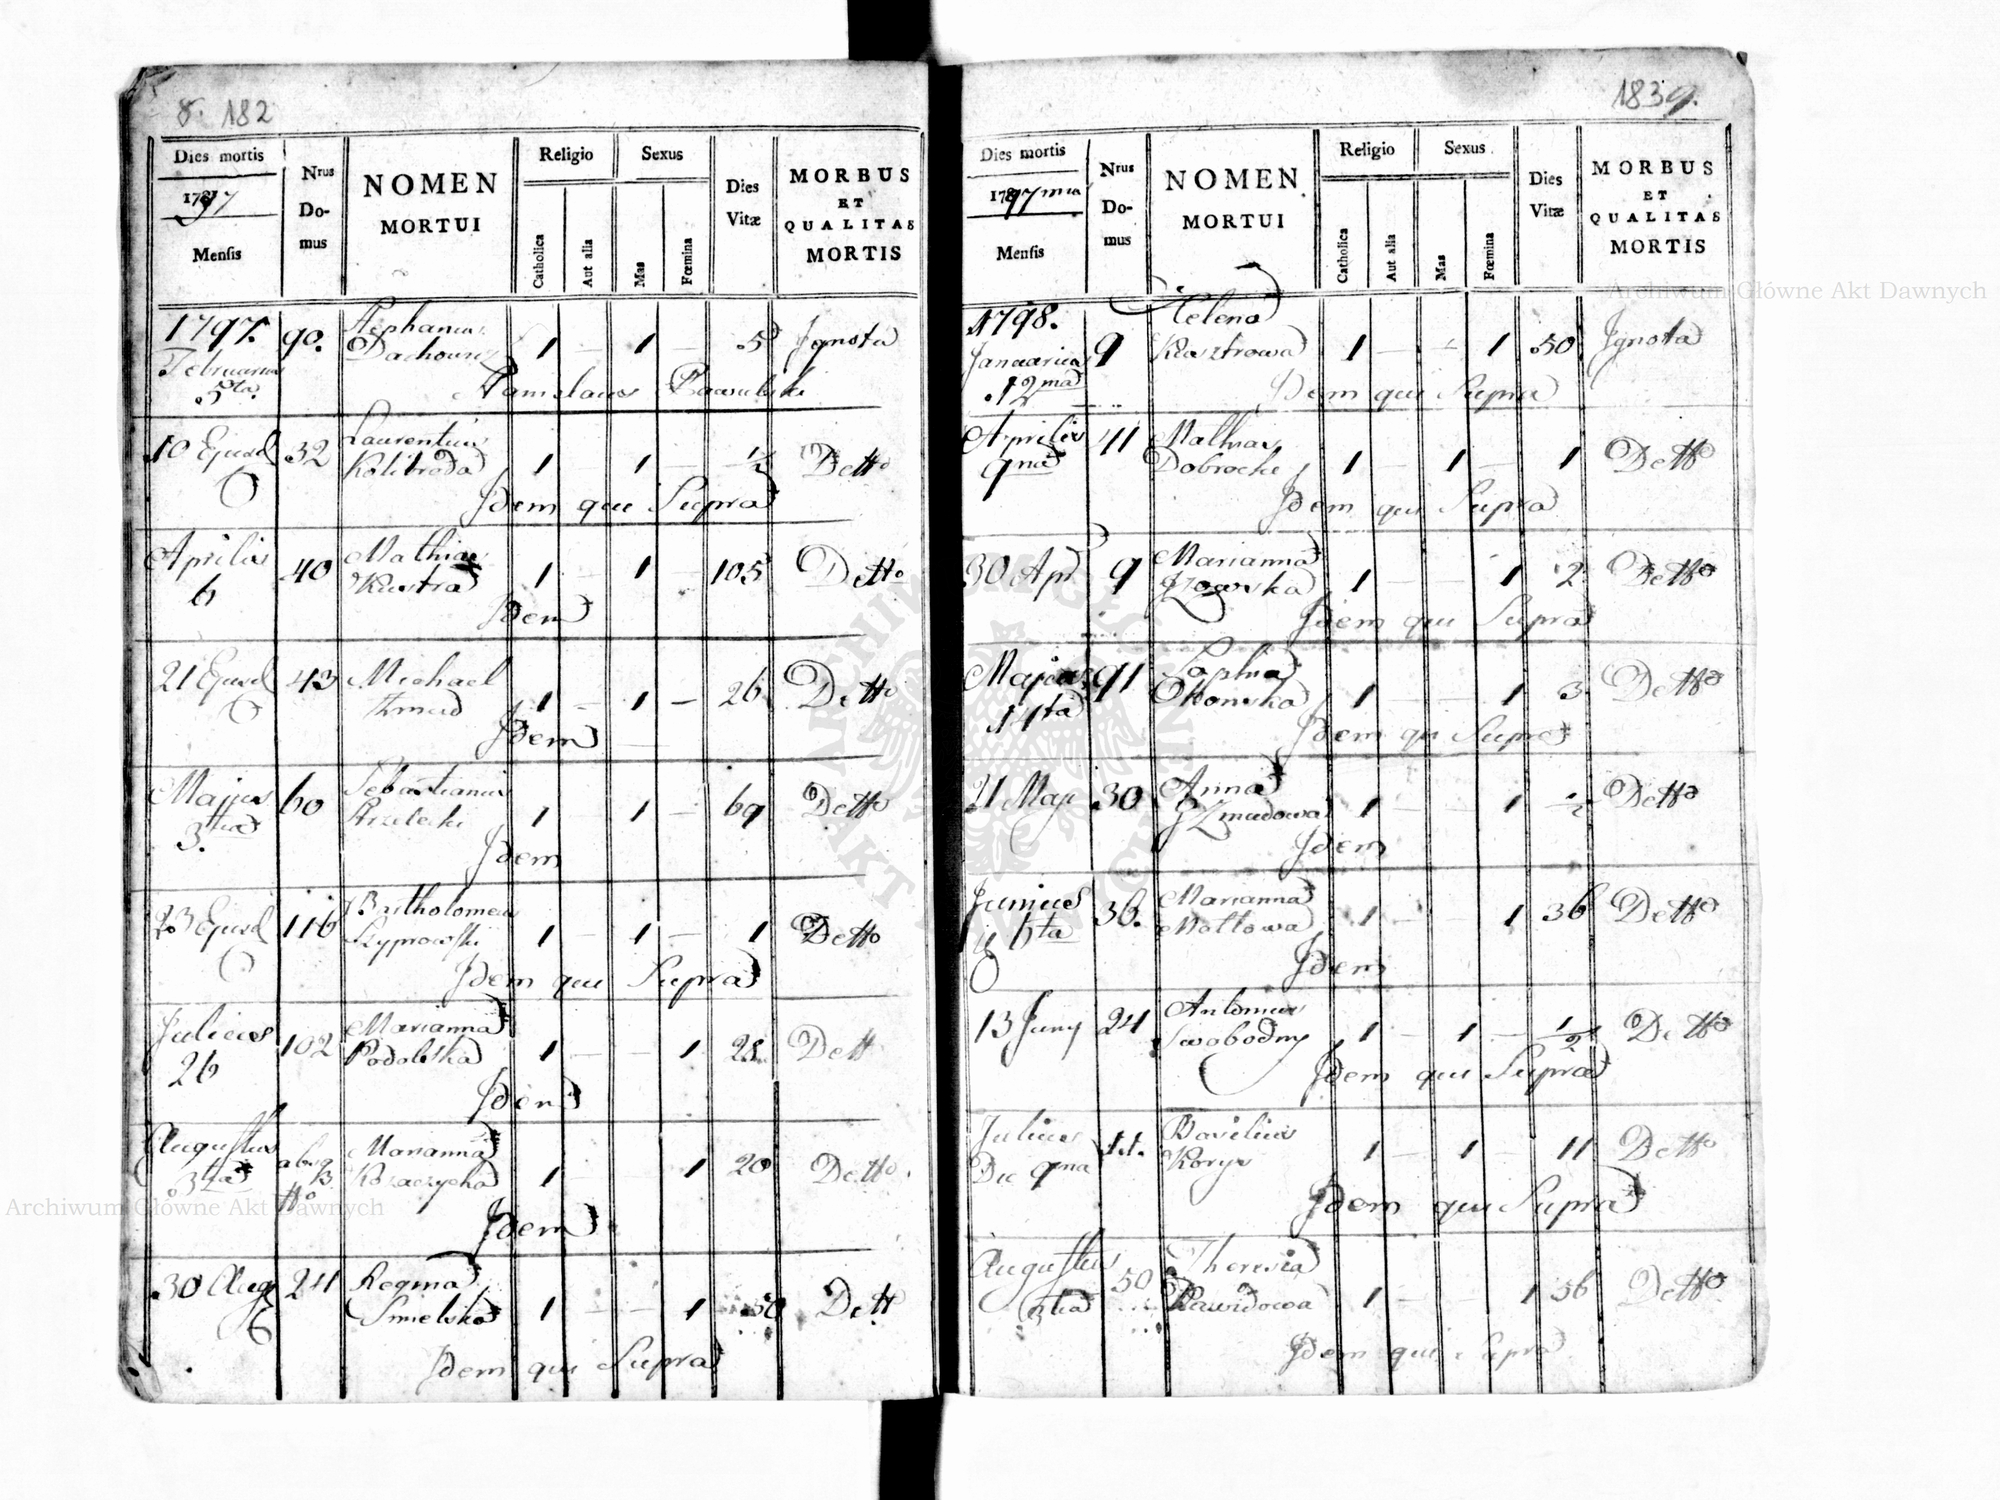 8. 182
Dies mortis
1797
Mensis
Nrus Domus
NOMEN
MORTUI
Religio
Catholica
Aut alia
Sexus
Mas
Fœmina
Dies
Vitæ
MORBUS
ET
QUALITAS
MORTIS
1797. 90. Stephanus 1 — 1 — 5 Ignota
Februarius
5ta
Stanislaus
10 Ejusd 32 Laurentius
Kolibroda 1 — 1 — ½ Detto
Idem qui Supra
Aprilis 40 Mathias
6 Kustra 1 — 1 — 105 Detto
Idem
21 Ejusd 43 Michael
1 — 1 — 26 Detto
Idem
Majus 60 Sebastianus
3tia Strzelecki 1 — 1 — 69 Detto
Idem
23 Ejusd 116 Bartholomeus
Szyprowski 1 — 1 — 1 Detto
Idem qui Supra
Julius 102 Marianna
26 Podolska 1 — — 1 28 Dett
Idem
Augustus Marianna
3tia Kozaczycha 1 — — 1 20 Detto
Idem
30 Aug 24 Regina
Smielska 1 — — 1 50 Dett
Idem qui Supra
1839.
Dies mortis
1797mus
Mensis
Nrus Domus
NOMEN
MORTUI
Religio
Catholica
Aut alia
Sexus
Mas
Fœmina
Dies
Vitæ
MORBUS
ET
QUALITAS
MORTIS
1798. 9 Helena
Januarius Kusztrowa 1 — — 1 50 Ignota
12ma
Idem qui Supra
Aprilis 41 Mathias
9na Dobrocki 1 — 1 — 1 Detto
Idem qui Supra
30 Apr 9 Marianna
1 — — 1 2 Detto
Idem qui Supra
Majus 91 Sophia
14ta Okonska 1 — — 1 3 Detto
Idem qui Supra
21 Maji 30 Anna
1 — — 1 ½ Detto
Idem
Junius 36. Marianna
6ta Mattowa 1 — — 1 36 Detto
Idem
13 Juny 24 Antonius
Swobodny 1 — 1 — ½ Detto
Idem qui Supra
Julius 11. Basilius
Die 9na Korys 1 — 1 — 11 Detto
Idem qui Supra
Augustus 50 Theresia
1 — — 1 56 Detto
Idem qui Supra
Archiwum Główne Akt Dawnych
Archiwum Główne Akt Dawnych
ARCHIWUM GŁÓWNE AKT DAWNYCH